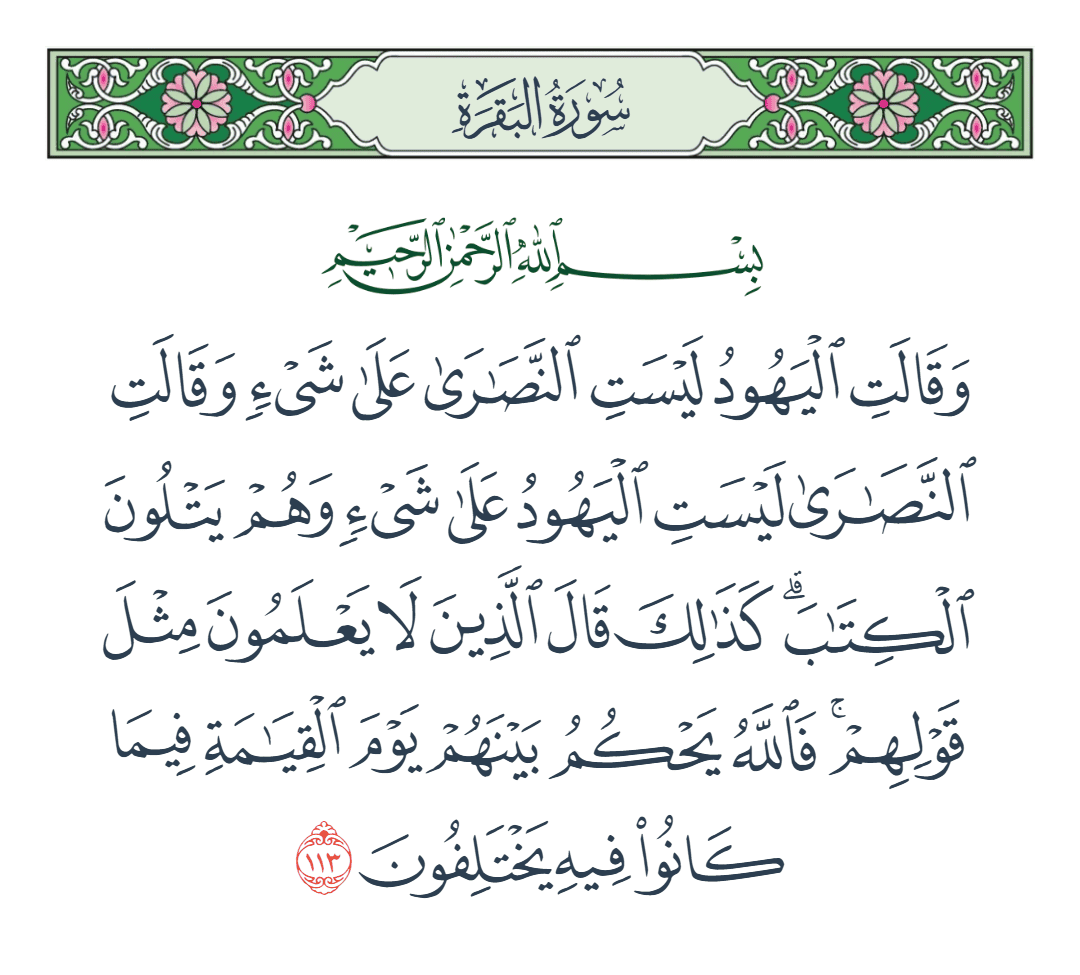 سُورَةُ البَقَرَةِ
بِسْمِ ٱللَّهِ ٱلرَّحْمَٰنِ ٱلرَّحِيمِ
وَقَالَتِ ٱلْيَهُودُ لَيْسَتِ ٱلنَّصَٰرَىٰ عَلَىٰ شَىْءٍ وَقَالَتِ
ٱلنَّصَٰرَىٰ لَيْسَتِ ٱلْيَهُودُ عَلَىٰ شَىْءٍ وَهُمْ يَتْلُونَ
ٱلْكِتَٰبَ ۗ كَذَٰلِكَ قَالَ ٱلَّذِينَ لَا يَعْلَمُونَ مِثْلَ
قَوْلِهِمْ ۚ فَٱللَّهُ يَحْكُمُ بَيْنَهُمْ يَوْمَ ٱلْقِيَٰمَةِ فِيمَا
كَانُوا۟ فِيهِ يَخْتَلِفُونَ ١١٣